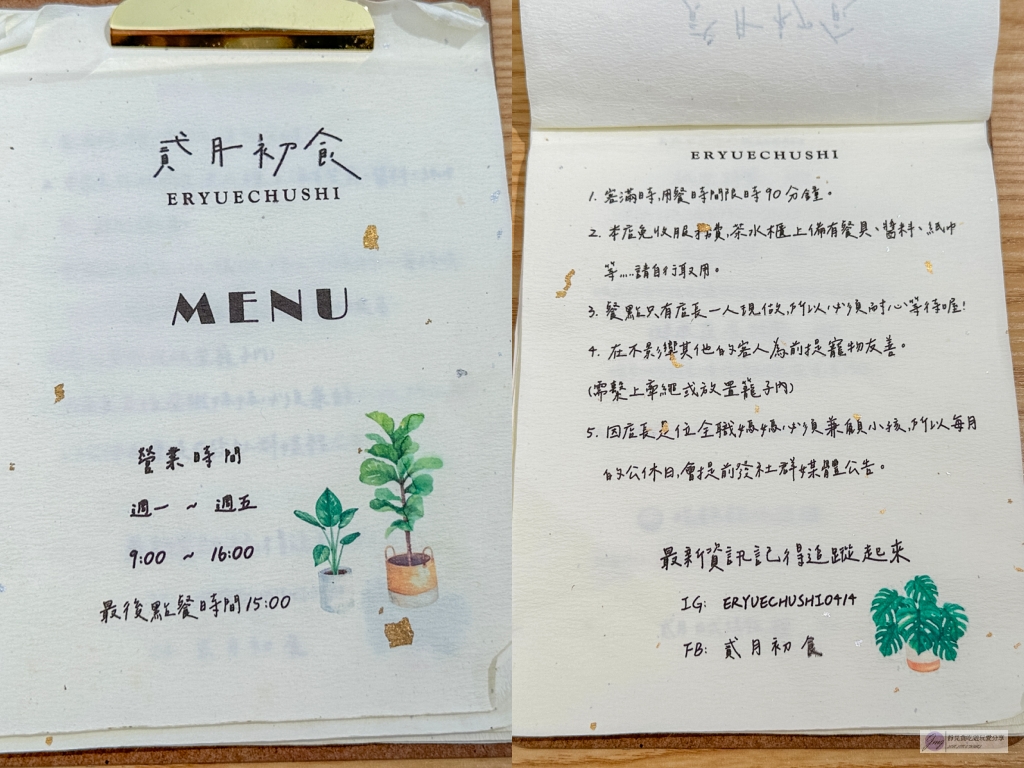 貳月初食
ERYUECHUSHI
MENU
營業時間
週一 ~ 週五
9:00 ~ 16:00
最後點餐時間15:00
ERYUECHUSHI
1. 客滿時,用餐時間限時90分鐘。
2. 本店免收服務費,茶水櫃上備有餐具、醬料、紙巾
等....請自行取用。
3. 餐點只有店長一人現做,所以必須耐心等待喔!
4. 在不影響其他的客人為前提寵物友善。
(需繫上牽繩或放置籠子內)
5. 因店長是位全職媽媽必須兼顧小孩,所以每月
的公休日,會提前於社群媒體公告。
最新資訊記得追蹤起來
IG: ERYUECHUSHI0414
FB: 貳月初食